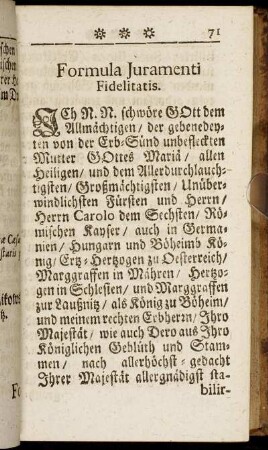 * * * 71
Formula Juramenti
Fidelitatis.
ICh N. N. schwöre GOtt dem
Allmächtigen/ der gebenedey-
ten von der Erb-Sünd unbefleckten
Mutter GOttes Mariä/ allen
Heiligen/ und dem Allerdurchlauch-
tigsten/ Großmächtigsten/ Unüber-
windlichsten Fürsten und Herrn/
Herrn Carolo dem Sechsten/ Rö-
mischen Kayser/ auch in Germa-
nien/ Hungarn und Böheimb Kö-
nig/ Ertz-Hertzogen zu Oesterreich/
Marggraffen in Mähren/ Hertzo-
gen in Schlesien/ und Marggraffen
zur Laußnitz/ als König zu Böheim/
und meinem rechten Erbherrn/ Ihro
Majestät/ wie auch Dero aus Ihro
Königlichen Geblüth und Stam-
men/ nach allerhöchst-gedacht
Ihrer Majestät allergnädigst sta-
bilir-